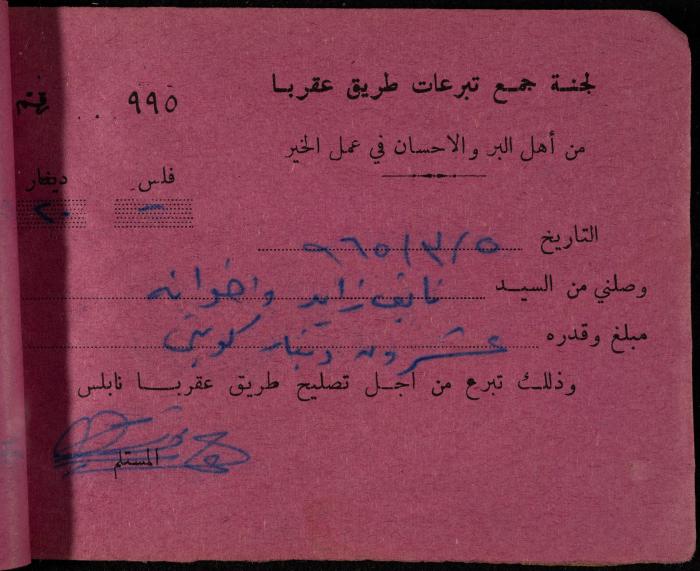 لجنة جمع تبرعات طريق عقربا
٩٩٥
من أهل البر والاحسان في عمل الخير
فلس دينار
— ٢٠
التاريخ ٥/٣/٩٦٥
وصلني من السيد نايف زايد واخوانه
مبلغ وقدره عشرون دينار كويتي
وذلك تبرع من أجل تصليح طريق عقربا نابلس
المستلم